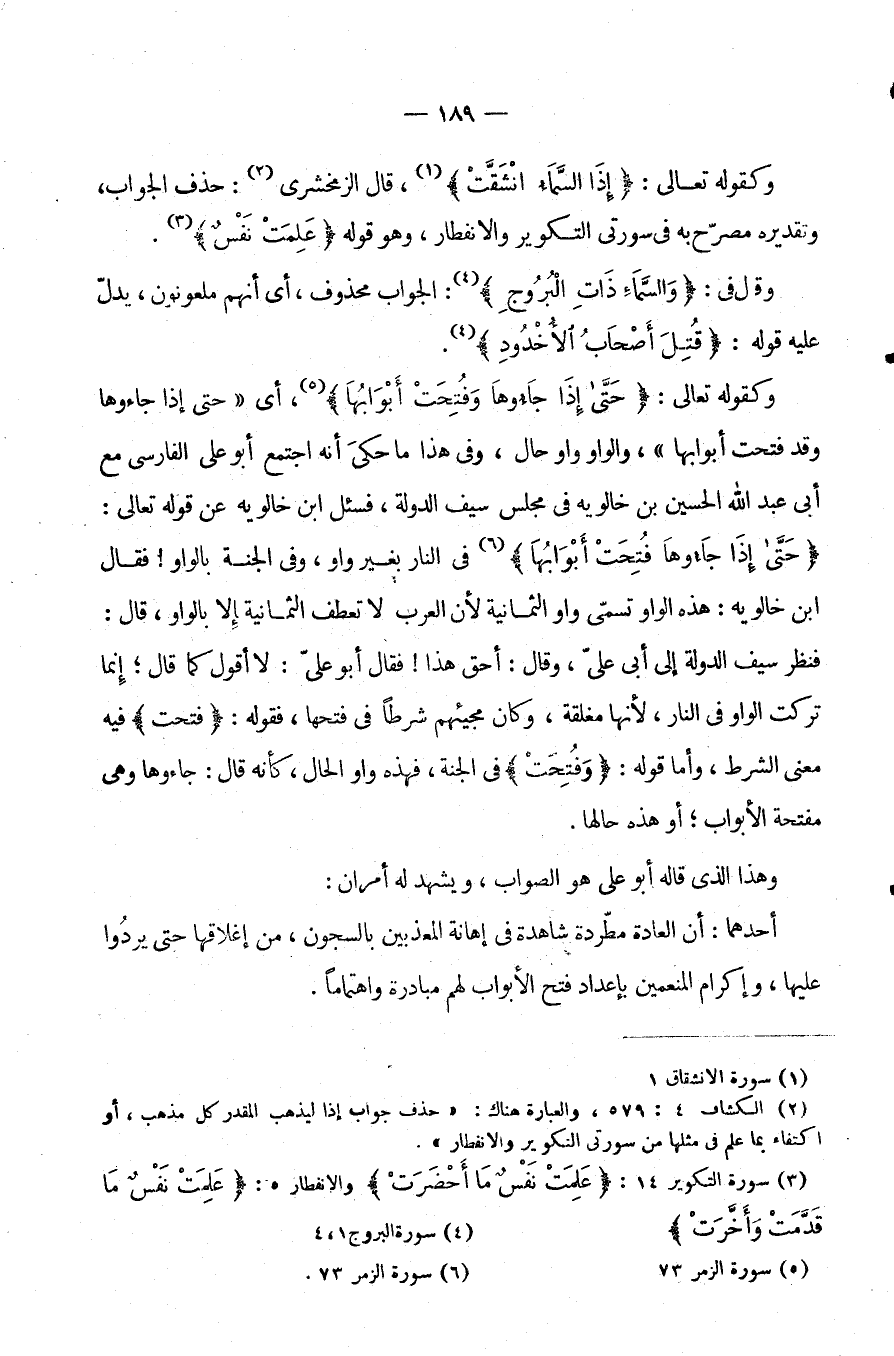 — ١٨٩ —
وكقوله تعـالى : ﴿ إِذَا السَّمَاءُ انْشَقَّتْ ﴾ (١) ، قال الزمخشرى (٢) : حذف الجواب،
وتقديره مصرّح به فى سورتى التـكوير والانفطار ، وهو قوله ﴿ عَلِمَتْ نَفْسٌ ﴾ (٣) .
وقال فى : ﴿ وَالسَّمَاءِ ذَاتِ الْبُرُوجِ ﴾ (٤) : الجواب محذوف ، أى أنهم ملعونون ، يدلّ
عليه قوله : ﴿ قُتِـلَ أَصْحَابُ ٱلْأُخْدُودِ ﴾ (٤) .
وكقوله تعالى : ﴿ حَتَّىٰ إِذَا جَاءُوهَا وَفُتِحَتْ أَبْوَابُهَا ﴾ (٥) ، أى « حتى إذا جاءوها
وقد فتحت أبوابها » ، والواو واو حال ، وفى هذا ما حكىَ أنه اجتمع أبو على الفارسى مع
أبى عبد الله الحسين بن خالويه فى مجلس سيف الدولة ، فسئل ابن خالويه عن قوله تعالى :
﴿ حَتَّىٰ إِذَا جَاءُوهَا فُتِحَتْ أَبْوَابُهَا ﴾ (٦) فى النار بغـير واو ، وفى الجنـة بالواو ! فقـال
ابن خالويه : هذه الواو تسمّى واو الثمـانية لأن العرب لا تعطف الثمـانية إلا بالواو ، قال :
فنظر سيف الدولة إلى أبى علىّ ، وقال : أحق هذا ! فقال أبو علىّ : لا أقول كما قال ؛ إنما
تركت الواو فى النار ، لأنها مغلقة ، وكان مجيئهم شرطاً فى فتحها ، فقوله : ﴿ فتحت ﴾ فيه
معنى الشرط ، وأما قوله : ﴿ وَفُتِحَتْ ﴾ فى الجنة ، فهذه واو الحال ، كأنه قال : جاءوها وهى
مفتحة الأبواب ؛ أو هذه حالها .
وهذا الذى قاله أبو على هو الصواب ، ويشهد له أمران :
أحدهما : أن العادة مطّردة شاهدة فى إهانة المعذبين بالسجون ، من إغلاقها حتى يردُوا
عليها ، وإكرام المنعمين بإعداد فتح الأبواب لهم مبادرة واهتماماً .
(١) سورة الانشقاق ١
(٢) الـكشاف ٤ : ٥٧٩ ، والعبارة هناك : « حذف جواب إذا ليذهب المقدر كل مذهب ، أو
اكتفاء بما علم فى مثلها من سورتى التكوير والانفطار » .
(٣) سورة التكوير ١٤ : ﴿ عَلِمَتْ نَفْسٌ مَا أَحْضَرَتْ ﴾ والانفطار ٥ : ﴿ عَلِمَتْ نَفْسٌ مَا
قَدَّمَتْ وَأَخَّرَتْ ﴾ (٤) سورة البروج ١ ، ٤
(٥) سورة الزمر ٧٣ (٦) سورة الزمر ٧٣ .